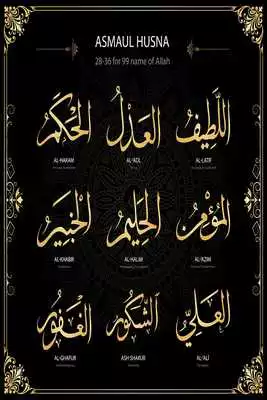 ASMAUL HUSNA
28-36 for 99 name of Allah
اللطيف العدل الحكم
AL-HAKAM AL-'ADL AL-LATIF
المؤمن الحليم الخبير
AL-KHABIR AL-HALIM AL-'AZIM
العلي الشكور الغفور
AL-GHAFUR ASH SHAKUR AL-'ALI